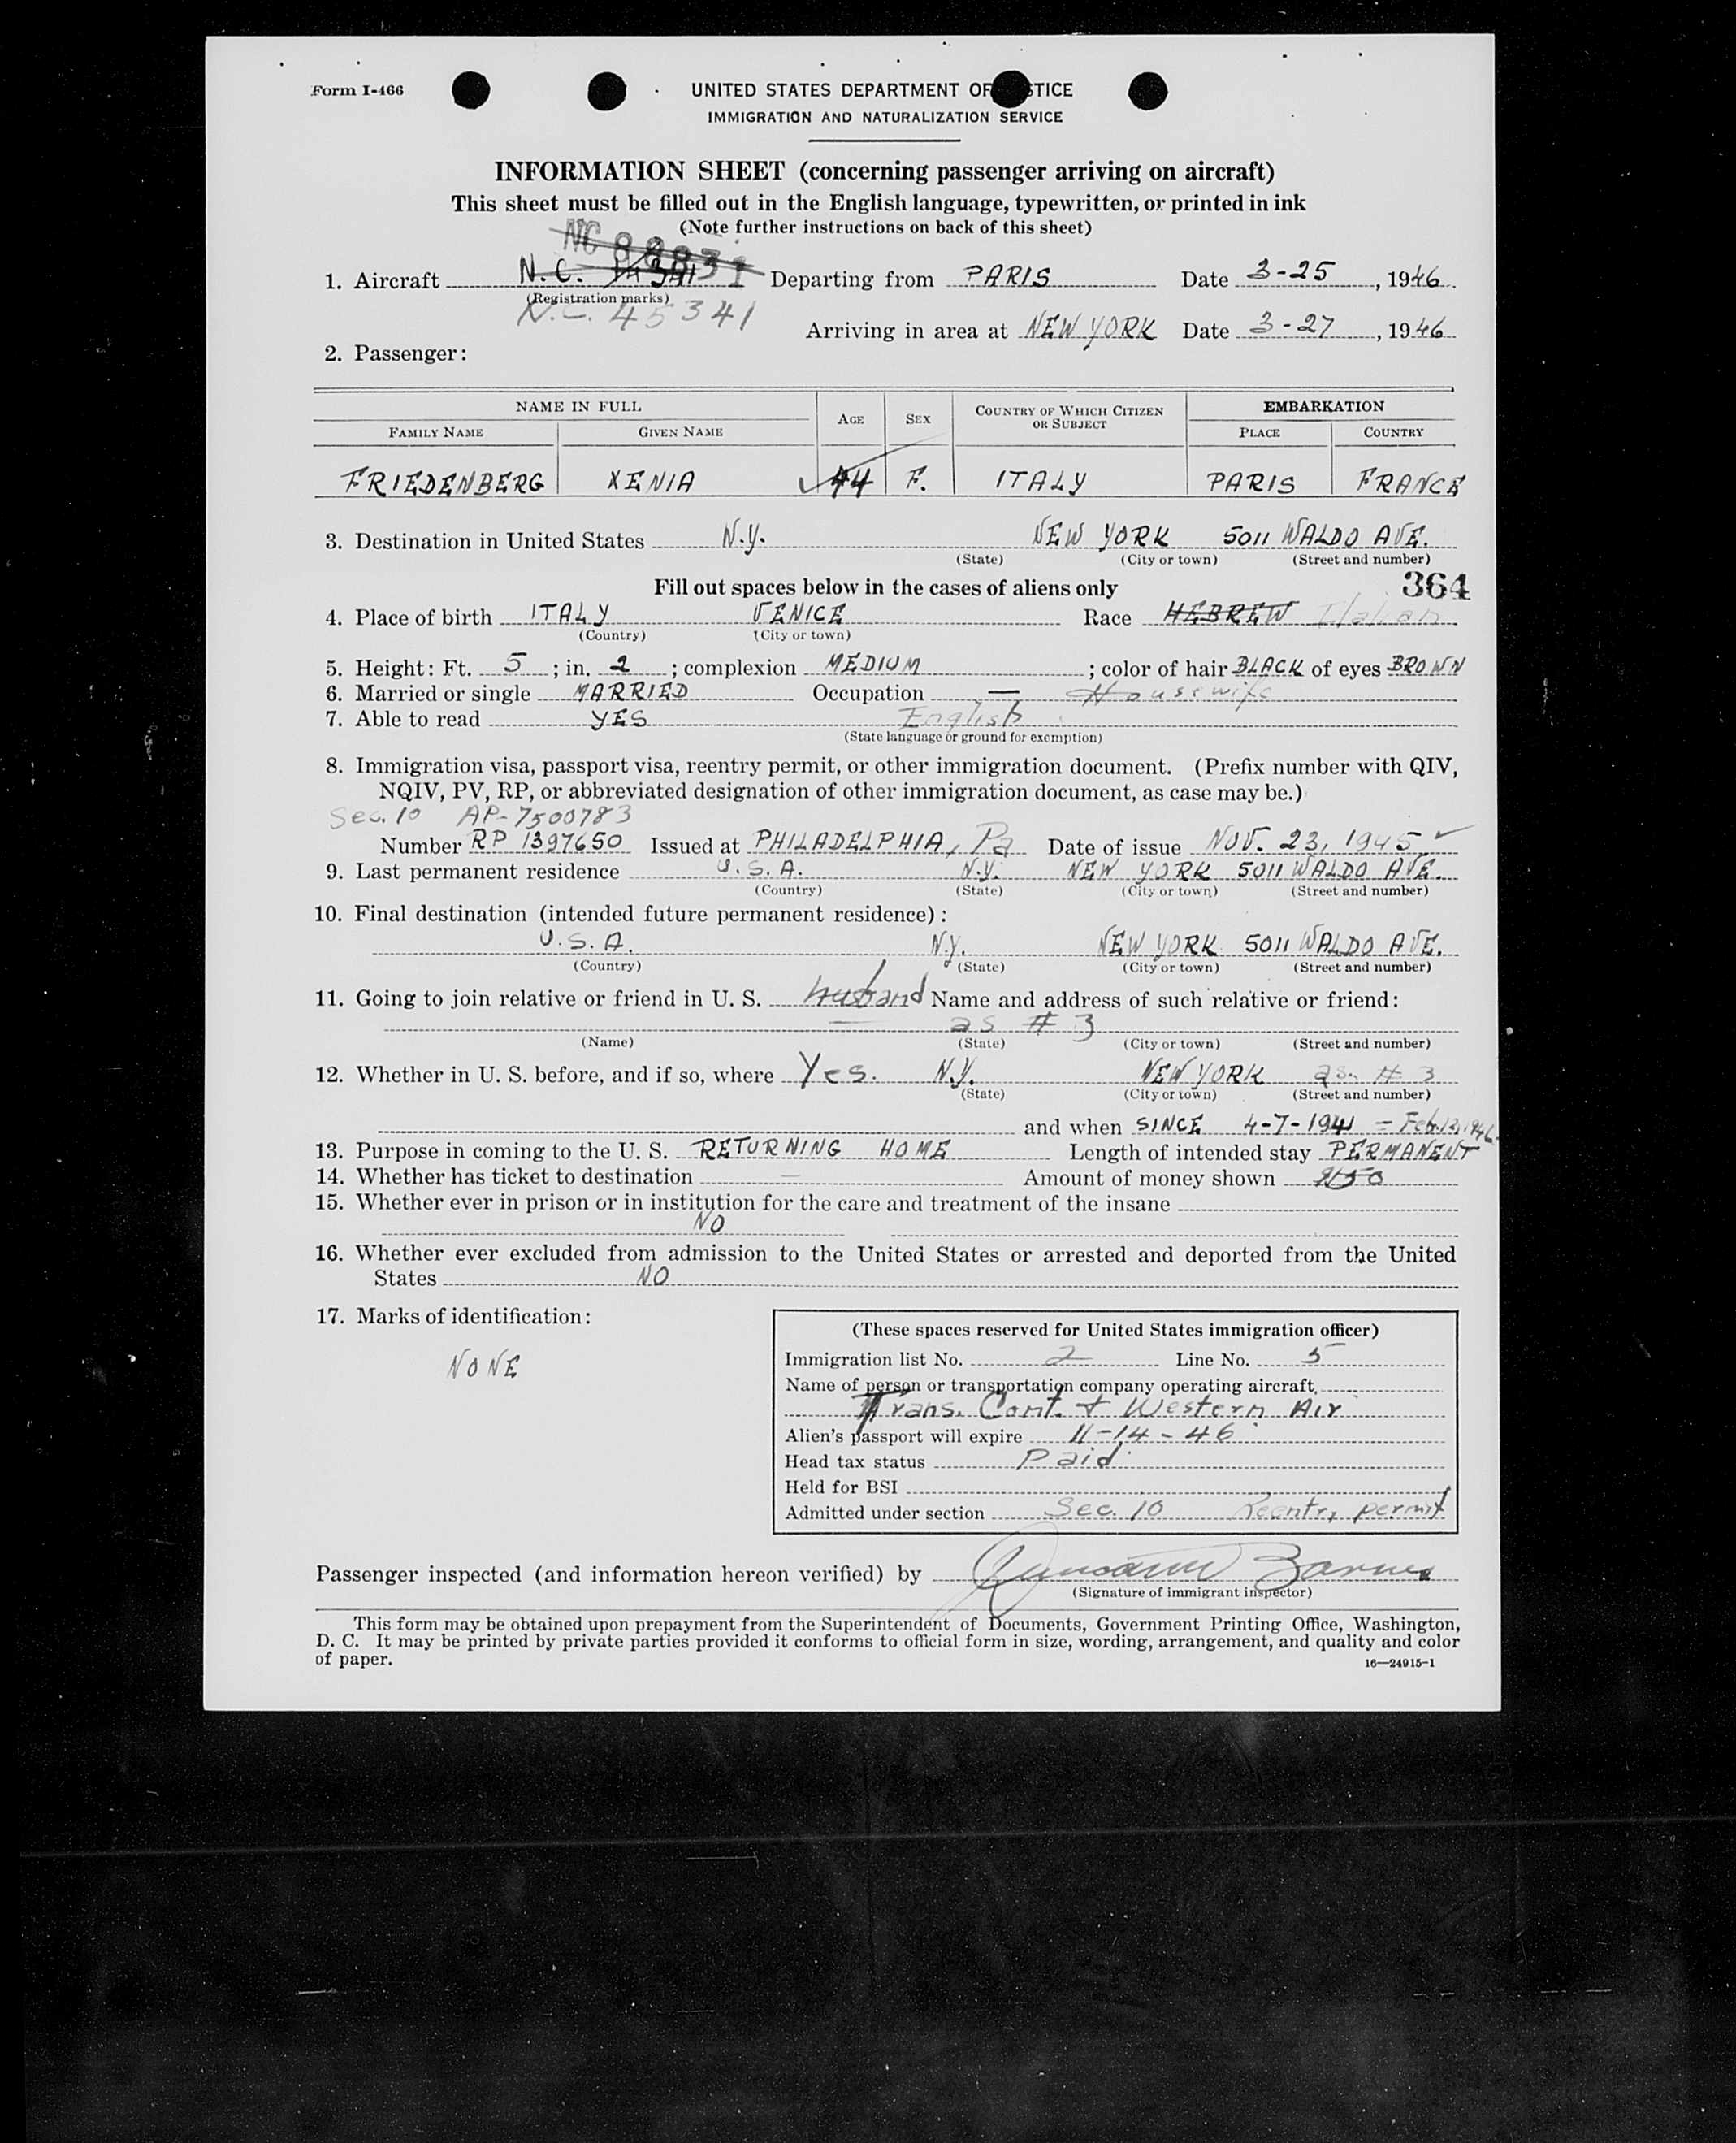 Form I-466
UNITED STATES DEPARTMENT OF STICE
IMMIGRATION AND NATURALIZATION SERVICE
INFORMATION SHEET (concerning passenger arriving on aircraft)
This sheet must be filled out in the English language, typewritten, or printed in ink
(Note further instructions on back of this sheet)
1. Aircraft N.C. Departing from PARIS Date 3-25, 1946.
(Registration marks)
N.C. 45341
Arriving in area at NEW YORK Date 3-27, 1946
2. Passenger:
NAME IN FULL AGE SEX COUNTRY OF WHICH CITIZEN OR SUBJECT EMBARKATION
FAMILY NAME GIVEN NAME PLACE COUNTRY
FRIEDENBERG XENIA 44 F. ITALY PARIS FRANCE
3. Destination in United States N.Y. NEW YORK 5011 WALDO AVE.
(State) (City or town) (Street and number)
Fill out spaces below in the cases of aliens only 364
4. Place of birth ITALY VENICE Race HEBREW Italian
(Country) (City or town)
5. Height: Ft. 5; in. 2; complexion MEDIUM; color of hair BLACK of eyes BROWN
6. Married or single MARRIED Occupation — Housewife
7. Able to read YES English
(State language or ground for exemption)
8. Immigration visa, passport visa, reentry permit, or other immigration document. (Prefix number with QIV,
NQIV, PV, RP, or abbreviated designation of other immigration document, as case may be.)
Sec. 10 AP-7500783
Number RP 1397650 Issued at PHILADELPHIA, Pa Date of issue NOV. 23, 1945
9. Last permanent residence U.S.A. N.Y. NEW YORK 5011 WALDO AVE.
(Country) (State) (City or town) (Street and number)
10. Final destination (intended future permanent residence):
U.S.A. N.Y. NEW YORK 5011 WALDO AVE.
(Country) (State) (City or town) (Street and number)
11. Going to join relative or friend in U. S. husband Name and address of such relative or friend:
as # 3
(Name) (State) (City or town) (Street and number)
12. Whether in U. S. before, and if so, where Yes. N.Y. NEW YORK as # 3
(State) (City or town) (Street and number)
and when SINCE 4-7-1941 - Feb. 1946
13. Purpose in coming to the U. S. RETURNING HOME Length of intended stay PERMANENT
14. Whether has ticket to destination — Amount of money shown
15. Whether ever in prison or in institution for the care and treatment of the insane
NO
16. Whether ever excluded from admission to the United States or arrested and deported from the United
States NO
17. Marks of identification:
NONE
(These spaces reserved for United States immigration officer)
Immigration list No. 2 Line No. 5
Name of person or transportation company operating aircraft,
Trans. Cont. + Western Air
Alien's passport will expire 11-14-46
Head tax status Paid
Held for BSI
Admitted under section Sec. 10 Reentry permit
Passenger inspected (and information hereon verified) by
(Signature of immigrant inspector)
This form may be obtained upon prepayment from the Superintendent of Documents, Government Printing Office, Washington,
D. C. It may be printed by private parties provided it conforms to official form in size, wording, arrangement, and quality and color
of paper.
16—24915-1